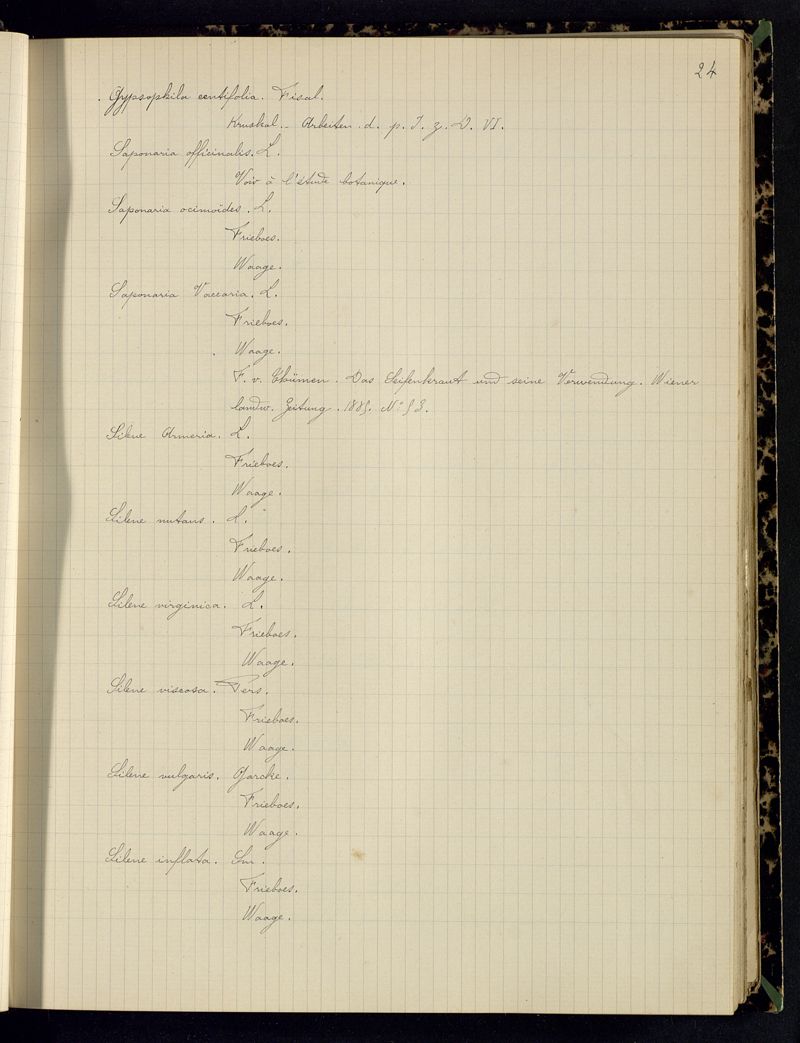 24
Gypsophila centifolia. Fisal.
Kruskal. - Arbeiten. d. p. I. z. D. VI.
Saponaria officinalis. L.
Voir à l'étude botanique.
Saponaria ocimoïdes. L.
Frieboes.
Waage.
Saponaria Vaccaria. L.
Frieboes.
Waage.
F. v. Thümen. Das Seifenkraut und seine Verwendung. Wiener
landw. Zeitung. 1889. No 93.
Silene Armeria. L.
Frieboes.
Waage.
Silene nutans. L.
Frieboes.
Waage.
Silene virginica. L.
Frieboes.
Waage.
Silene viscosa. Pers.
Frieboes.
Waage.
Silene vulgaris. Garcke.
Frieboes.
Waage.
Silene inflata. Sm.
Frieboes.
Waage.